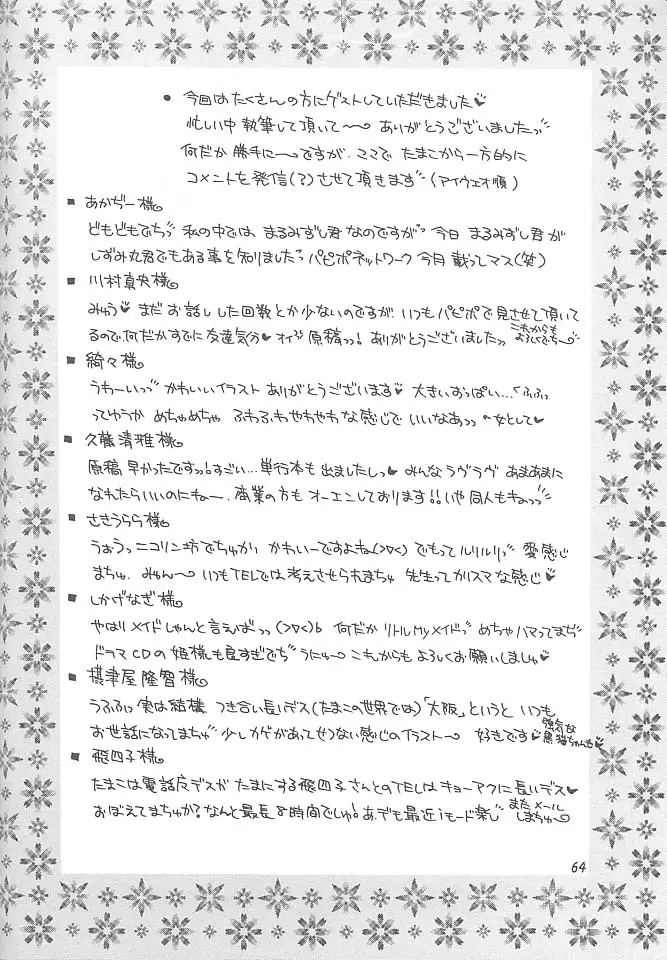 ● 今回はたくさんの方にゲストしていただきました♥
忙しい中 執筆して頂いて〜 ありがとうございましたっ〃
何だか 勝手に〜ですが、ココで たまこから一方的に
コメントを発信(?)させて頂きます (アイウエオ順)
■ あかぢー様
どもどもでちっ〃 私の中では、まるみずし君 なのですが〃 今日 まるみずし君が
しずみ丸君でもある事を知りました〃 パピポネットワーク 今月 載ってマス(笑)
■ 川村真央様
みゅう♥ まだ お話しした回数とか少ないのですが、いつもパピポで見させて頂いて
るので、何だかすでに友達気分♥ オイ〃 原稿っ! ありがとうございましたっ これからも よろしくでち〜
■ 綺々様
うわーいっっ〃 かわいいイラスト ありがとうございます♥ 大きいおっぱい…くふふっ
ってゆうか めちゃめちゃ ふわふわやわやわな感じで いいなあっっ の女として♥
■ 久藤清雅様
原稿 早かったですっっ!すごい…単行本も出ましたしっ♥ みんなラヴラヴ あまあまに
なれたらいいのにキュー、商業の方も オーエンしております!!いや 同人もキュっっ〃
■ ささうらら様
うぉうっ ニコリン坊でちゅかり かわいーですよね(>▽<) でもって ルリルリっ〃 愛感じ
まちゅ、みゅん〜 いつもTELでは考えさせられまちゅ 先生ってカリスマな感じ♥
■ しかげなぎ様
やはり メイドしゃんと言えばっっ(>▽<)b 何だか リトルMyメイドっ〃 めちゃハマってまぢ
ドラマCDの姫様も良すぎでぢ うにゅ〜 これからも よろしくお願いしましゅ♥
■ 摂津屋隆智様
うふふっ 実は結構 つき合い長いデス(たまこの世界では)「大阪」というと いつも
お世話になってまちゅ〃 少しカゲがあってせつない感じのイラスト〜 好きです♥ 強気な 黒猫ちゃんも♥
■ 飛四子様
たまこは電話反デスが たまにする飛四子さんとのTELはキョーアクに長いデス♥
おぼえてまちゅか?なんと最長8時間でしゅ!あ、でも最近iモード楽し〃 また メール しまちゅ〜
64